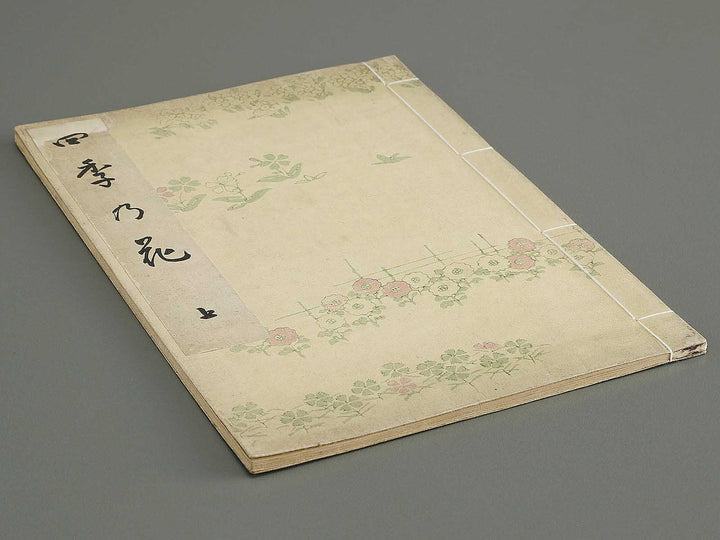 四季乃花
上